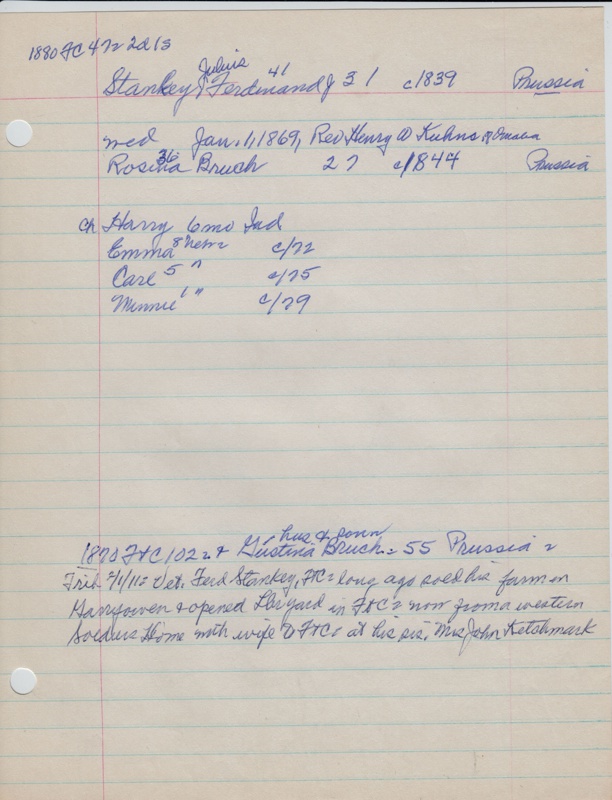 1880 FC 472 2d 13
Julius
Stankey, Ferdinand J 41 31 c1839 Prussia
med Jan. 1, 1869, Rev Henry W Kuhns, of Omaha
Rosina 36 Bruch 27 c/1844 Prussia
ch Harry 6mo Ind
Emma 8 Nebr c/72
Carl 5 " c/75
Minnie 1 " c/79
hus & conn
1870 Ft C 102 & Gustina Bruch 55 Prussia
Trib 2/1/11 Vet. Ferd Stankey, FtC long ago sold his farm on
Garryowen & opened lbryard in FtC now from a western
Soldiers Home with wife to FtC at his sis, Mrs John Ketchmark